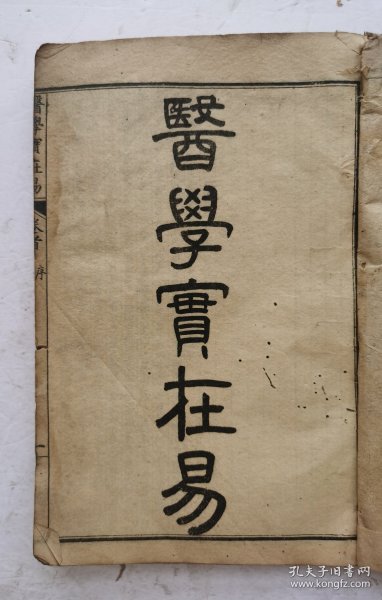 醫學實在易
醫學實在易 序
孔夫子旧书网
www.kongfz.com